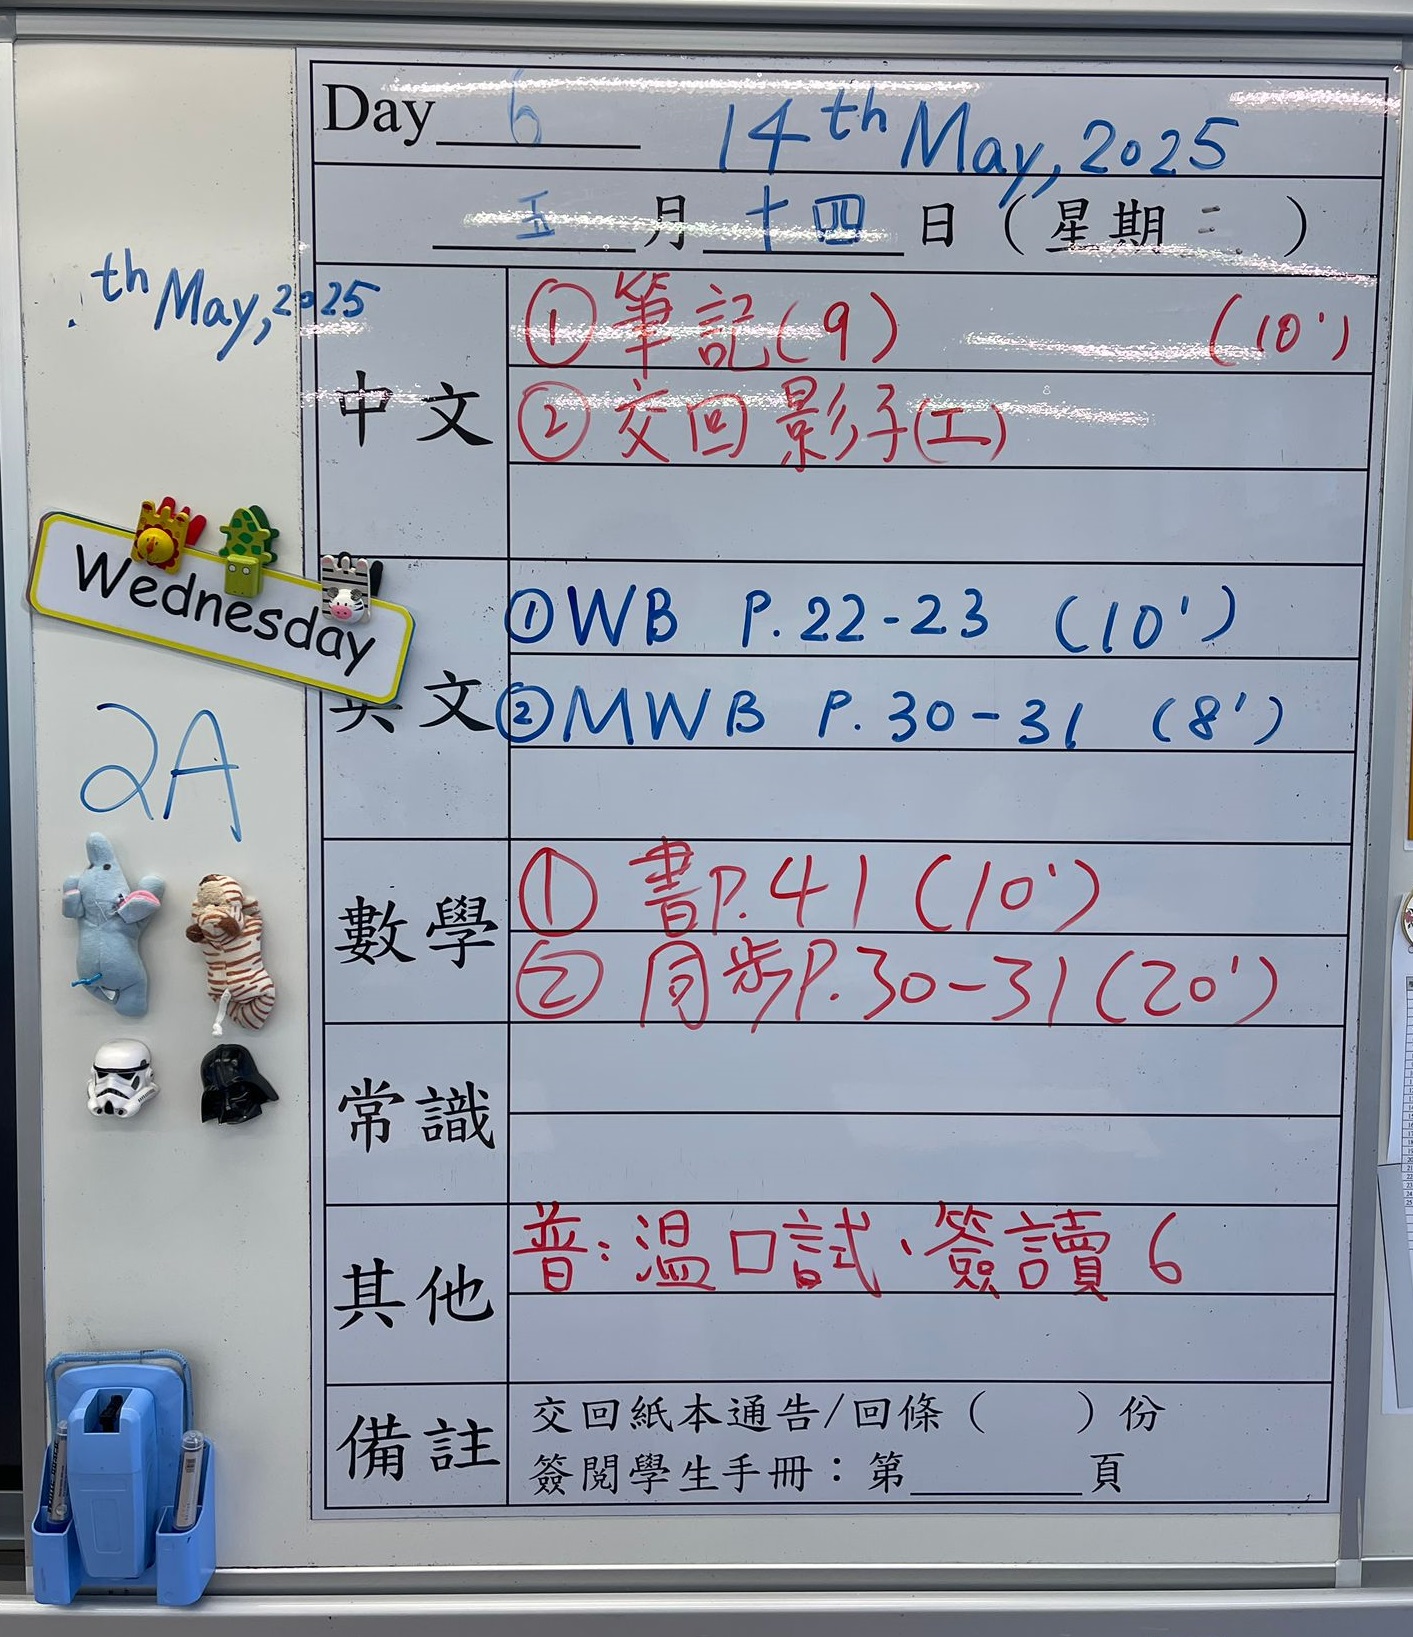 Day 6 14th May, 2025
五月十四日（星期三）
th May, 2025
中文
①筆記(9) (10')
②交回影子(工)
Wednesday
英文
①WB P.22-23 (10')
②MWB P.30-31 (8')
2A
數學
① 書P.41 (10')
② 同步P.30-31 (20')
常識
其他
普：溫口試、簽讀6
備註
交回紙本通告/回條（ ）份
簽閱學生手冊：第______頁